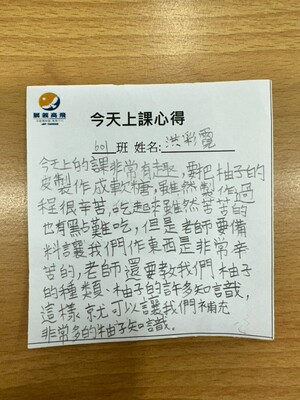 展翼高飛
今天上課心得
601 班 姓名: 洪彩霞
今天上的課非常有趣，要把柚子的
皮製作成軟糖，雖然製作過
程很辛苦，吃起來雖然苦苦的
也有點難吃，但是老師要備
料讓我們作東西是非常辛
苦的，老師還要教我們柚子
的種類、柚子的許多知識，
這樣就可以讓我們補充
非常多的柚子知識。